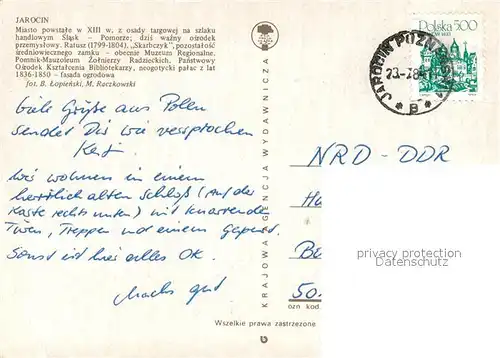 JAROCIN
Miasto powstałe w XIII w, z osady targowej na szlaku
handlowym Śląsk – Pomorze; dziś ważny ośrodek
przemysłowy. Ratusz (1799-1804), „Skarbczyk", pozostałość
średniowiecznego zamku - obecnie Muzeum Regionalne.
Pomnik-Mauzoleum Żołnierzy Radzieckich. Państwowy
Ośrodek Kształcenia Bibliotekarzy, neogotycki pałac z lat
1836-1850 – fasada ogrodowa
fot. B. Łopieński, M. Raczkowski
Viele Grüße aus Polen
sendet Dir wie versprochen
Wir wohnen in einem
herrlich alten Schloß (Auf der
Karte rechts unten) mit knarrenden
Türen, Treppen und einem Gespenst.
Sonst ist hier alles OK.
Machs gut
KRAJOWA AGENCJA WYDAWNICZA
Wszelkie prawa zastrzeżone
Polska 500
JAROCIN POZN
B
NRD-DDR
50.
ozn kod
privacy protection
Datenschutz